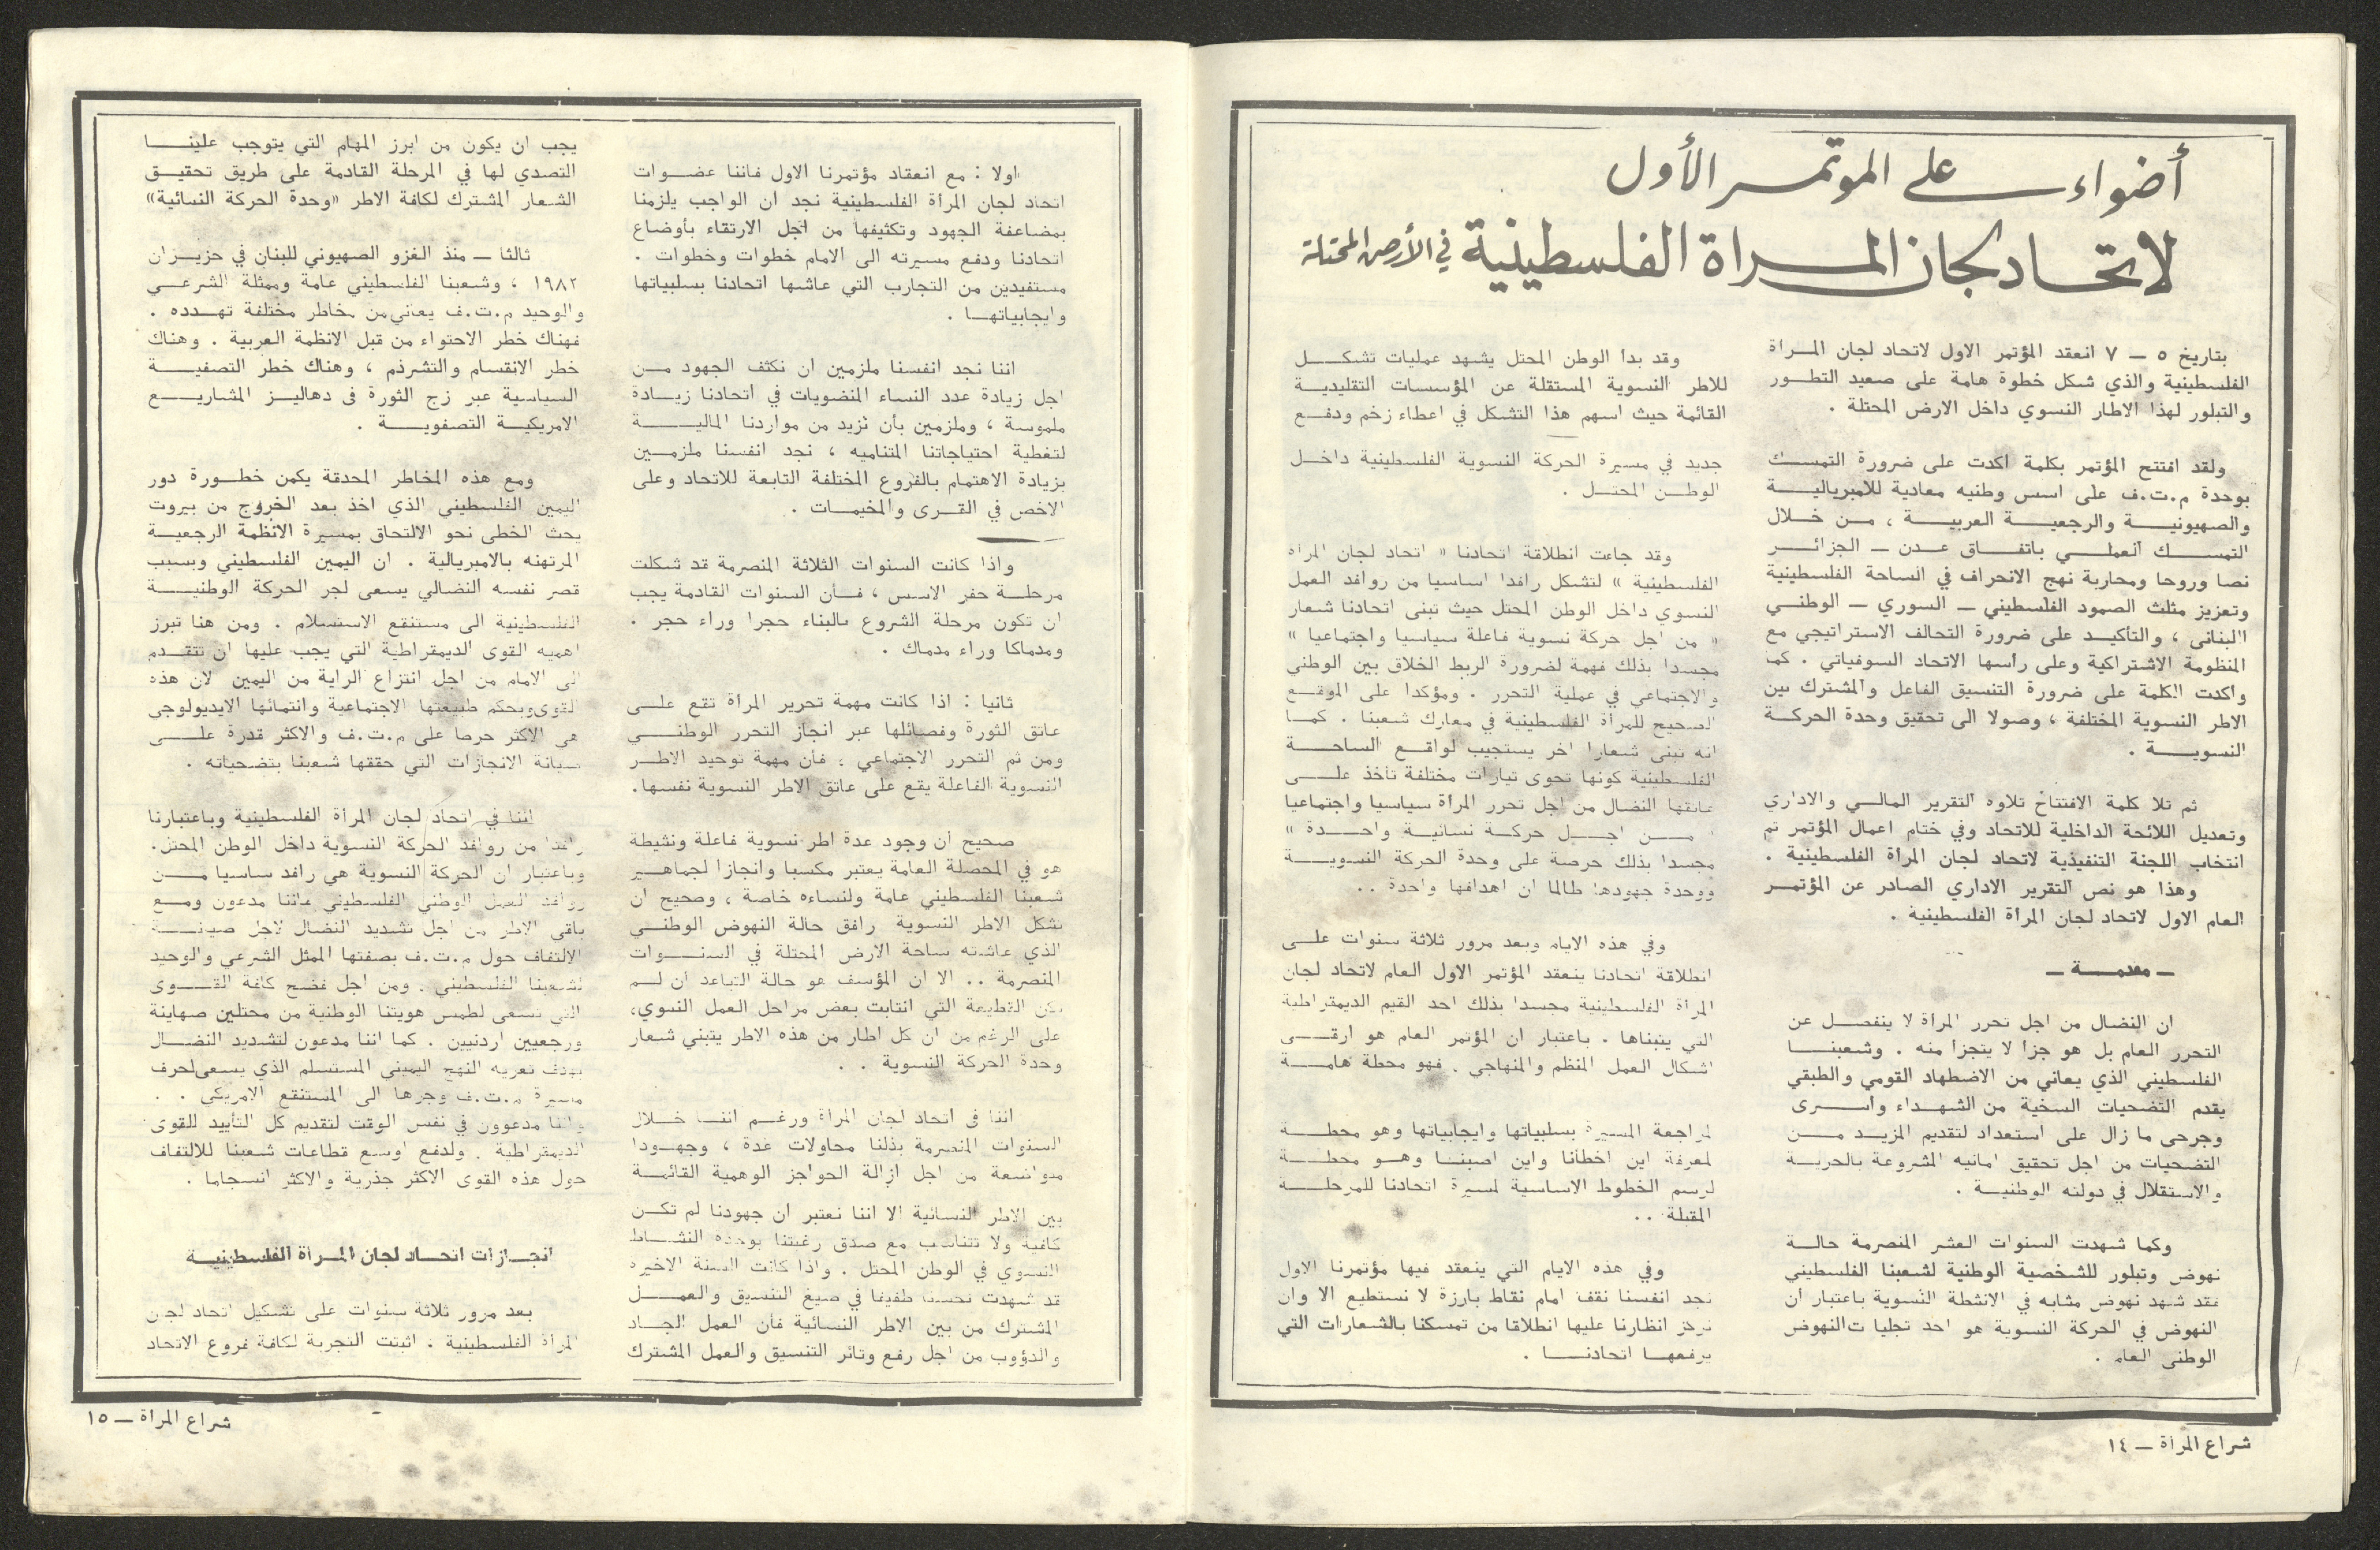 أضواء على المؤتمر الأول
لاتحاد لجان المرأة الفلسطينية في الأرض المحتلة
بتاريخ ٥ ــ ٧ انعقد المؤتمر الاول لاتحاد لجان المرأة
الفلسطينية والذي شكل خطوة هامة على صعيد التطور
والتبلور لهذا الاطار النسوي داخل الارض المحتلة .
ولقد افتتح المؤتمر بكلمة اكدت على ضرورة التمسك
بوحدة م.ت.ف على اسس وطنيه معادية للامبريالية
والصهيونية والرجعية العربية ، من خلال
التمسك العملي باتفاق عدن ــ الجزائر
نصا وروحا ومحاربة نهج الانحراف في الساحة الفلسطينية
وتعزيز مثلث الصمود الفلسطيني ــ السوري ــ الوطني
اللبناني ، والتأكيد على ضرورة التحالف الاستراتيجي مع
المنظومة الاشتراكية وعلى رأسها الاتحاد السوفياتي . كما
واكدت الكلمة على ضرورة التنسيق الفاعل والمشترك بين
الاطر النسوية المختلفة ، وصولا الى تحقيق وحدة الحركة
النسوية .
ثم تلا كلمة الافتتاح تلاوه التقرير المالي والاداري
وتعديل اللائحة الداخلية للاتحاد وفي ختام اعمال المؤتمر تم
انتخاب اللجنة التنفيذية لاتحاد لجان المرأة الفلسطينية .
وهذا هو نص التقرير الاداري الصادر عن المؤتمر
العام الاول لاتحاد لجان المرأة الفلسطينية .
ــ مقدمة ــ
ان النضال من اجل تحرر المرأة لا ينفصل عن
التحرر العام بل هو جزأ لا يتجزأ منه . وشعبنا
الفلسطيني الذي يعاني من الاضطهاد القومي والطبقي
يقدم التضحيات السخية من الشهداء واسرى
وجرحى ما زال على استعداد لتقديم المزيد من
التضحيات من اجل تحقيق امانيه المشروعة بالحرية
والاستقلال في دولته الوطنية .
وكما شهدت السنوات العشر المنصرمة حالة
نهوض وتبلور للشخصية الوطنية لشعبنا الفلسطيني
فقد شهد نهوض مشابه في الانشطة النسوية باعتبار أن
النهوض في الحركة النسوية هو احد تجليات النهوض
الوطني العام .
وقد بدأ الوطن المحتل يشهد عمليات تشكل
للاطر النسوية المستقلة عن المؤسسات التقليدية
القائمة حيث اسهم هذا التشكل في اعطاء زخم ودفع
جديد في مسيرة الحركة النسوية الفلسطينية داخل
الوطن المحتل .
وقد جاءت انطلاقة اتحادنا « اتحاد لجان المرأة
الفلسطينية » لتشكل رافدا اساسيا من روافد العمل
النسوي داخل الوطن المحتل حيث تبنى اتحادنا شعار
« من اجل حركة نسوية فاعلة سياسيا واجتماعيا »
مجسدا بذلك فهمة لضرورة الربط الخلاق بين الوطني
والاجتماعي في عملية التحرر . ومؤكدا على الموقع
الصحيح للمرأة الفلسطينية في معارك شعبنا . كما
انه تبنى شعارا اخر يستجيب لواقع الساحة
الفلسطينية كونها تحوى تيارات مختلفة تأخذ على
عاتقها النضال من اجل تحرر المرأة سياسيا واجتماعيا
من اجل حركة نسائية واحدة »
مجسدا بذلك حرصة على وحدة الحركة النسوية
ووحدة جهودها طالما ان اهدافها واحدة . .
وفي هذه الايام وبعد مرور ثلاثة سنوات على
انطلاقة اتحادنا ينعقد المؤتمر الاول العام لاتحاد لجان
المرأة الفلسطينية مجسدا بذلك احد القيم الديمقراطية
التي يتبناها . باعتبار ان المؤتمر العام هو ارقى
اشكال العمل المنظم والمنهاجي . فهو محطة هامة
لمراجعة المسيرة بسلبياتها وايجابياتها وهو محطة
لمعرفة اين اخطأنا واين اصبنا وهو محطة
لرسم الخطوط الاساسية لمسيرة اتحادنا للمرحلة
المقبلة . .
وفي هذه الايام التي ينعقد فيها مؤتمرنا الاول
نجد انفسنا نقف امام نقاط بارزة لا نستطيع الا وان
نركز انظارنا عليها انطلاقا من تمسكنا بالشعارات التي
يرفعها اتحادنا .
شراع المرأة ــ ١٤
اولا : مع انعقاد مؤتمرنا الاول فاننا عضوات
اتحاد لجان المرأة الفلسطينية نجد ان الواجب يلزمنا
بمضاعفة الجهود وتكثيفها من اجل الارتقاء بأوضاع
اتحادنا ودفع مسيرته الى الامام خطوات وخطوات .
مستفيدين من التجارب التي عاشها اتحادنا بسلبياتها
وايجابياتها .
اننا نجد انفسنا ملزمين ان نكثف الجهود من
اجل زيادة عدد النساء المنضويات في اتحادنا زيادة
ملموسة ، وملزمين بأن نزيد من مواردنا المالية
لتغطية احتياجاتنا المتناميه ، نجد انفسنا ملزمين
بزيادة الاهتمام بالفروع المختلفة التابعة للاتحاد وعلى
الاخص في القرى والمخيمات .
واذا كانت السنوات الثلاثة المنصرمة قد شكلت
مرحلة حفر الاسس ، فأن السنوات القادمة يجب
ان تكون مرحلة الشروع بالبناء حجرا وراء حجر .
ومدماكا وراء مدماك .
ثانيا : اذا كانت مهمة تحرير المرأة تقع على
عاتق الثورة وفصائلها عبر انجاز التحرر الوطني
ومن ثم التحرر الاجتماعي ؛ فأن مهمة توحيد الاطر
النسوية الفاعلة يقع على عاتق الاطر النسوية نفسها.
صحيح أن وجود عدة اطر نسوية فاعلة ونشيطة
هو في المحصلة العامة يعتبر مكسبا وانجازا لجماهير
شعبنا الفلسطيني عامة ولنساءه خاصة ، وصحيح ان
تشكل الاطر النسوية رافق حالة النهوض الوطني
الذي عاشته ساحة الارض المحتلة في السنوات
المنصرمة .. الا ان المؤسف هو حالة التباعد ان لم
تكن القطيعة التي انتابت بعض مراحل العمل النسوي،
على الرغم من ان كل اطار من هذه الاطر يتبني شعار
وحدة الحركة النسوية . .
اننا فى اتحاد لجان المرأة ورغم اننا خلال
السنوات المنصرمة بذلنا محاولات عدة ، وجهودا
متواضعة من اجل ازالة الحواجز الوهمية القائمة
بين الاطر النسائية الا اننا نعتبر ان جهودنا لم تكن
كافية ولا تتناسب مع صدق رغبتنا بوحدة النشاط
النسوي في الوطن المحتل . واذا كانت السنة الاخيره
قد شهدت تحسنا طفيفا في صيغ التنسيق والعمل
المشترك من بين الاطر النسائية فأن العمل الجاد
والدؤوب من اجل رفع وتائر التنسيق والعمل المشترك
يجب ان يكون من ابرز المهام التي يتوجب علينا
التصدي لها في المرحلة القادمة على طريق تحقيق
الشعار المشترك لكافة الاطر «وحدة الحركة النسائية»
ثالثا ــ منذ الغزو الصهيوني للبنان في حزيران
١٩٨٢ ، وشعبنا الفلسطيني عامة وممثلة الشرعي
والوحيد م.ت.ف يعاني من مخاطر مختلفة تهدده .
فهناك خطر الاحتواء من قبل الانظمة العربية . وهناك
خطر الانقسام والتشرذم ، وهناك خطر التصفية
السياسية عبر زج الثورة فى دهاليز المشاريع
الامريكية التصفوية .
ومع هذه المخاطر المحدقة يكمن خطورة دور
اليمين الفلسطيني الذي اخذ بعد الخروج من بيروت
يحث الخطى نحو الالتحاق بمسيرة الانظمة الرجعية
المرتهنه بالامبريالية . ان اليمين الفلسطيني وبسبب
قصر نفسه النضالي يسعى لجر الحركة الوطنية
الفلسطينية الى مستنقع الاستسلام . ومن هنا تبرز
اهميه القوى الديمقراطية التي يجب عليها ان تتقدم
الى الامام من اجل انتزاع الراية من اليمين لان هذه
القوى وبحكم طبيعتها الاجتماعية وانتمائها الايديولوجي
هى الاكثر حرصا على م.ت.ف والاكثر قدرة على
صيانة الانجازات التي حققها شعبنا بتضحياته .
اننا في اتحاد لجان المرأة الفلسطينية وباعتبارنا
رافدا من روافد الحركة النسوية داخل الوطن المحتل.
وباعتبار ان الحركة النسوية هي رافد ساسيا من
روافد العمل الوطني الفلسطيني فاننا مدعون ومع
باقي الاطر من اجل تشديد النضال لاجل صيانة
الالتفاف حول م.ت.ف بصفتها الممثل الشرعي والوحيد
لشعبنا الفلسطيني . ومن اجل فضح كافة القوى
التي تسعى لطمس هويتنا الوطنية من محتلين صهاينة
ورجعيين اردنيين . كما اننا مدعون لتشديد النضال
بهدف تعريه النهج اليميني المستسلم الذي يسعى لحرف
مسيرة م.ت.ف وجرها الى المستنقع الامريكي . .
واننا مدعوون في نفس الوقت لتقديم كل التأييد للقوى
الديمقراطية . ولدفع اوسع قطاعات شعبنا للالتفاف
حول هذه القوى الاكثر جذرية والاكثر انسجاما .
انجازات اتحاد لجان المرأة الفلسطينية
بعد مرور ثلاثة سنوات على تشكيل اتحاد لجان
المرأة الفلسطينية . اثبتت التجربة لكافة فروع الاتحاد
شراع المرأة ــ ١٥